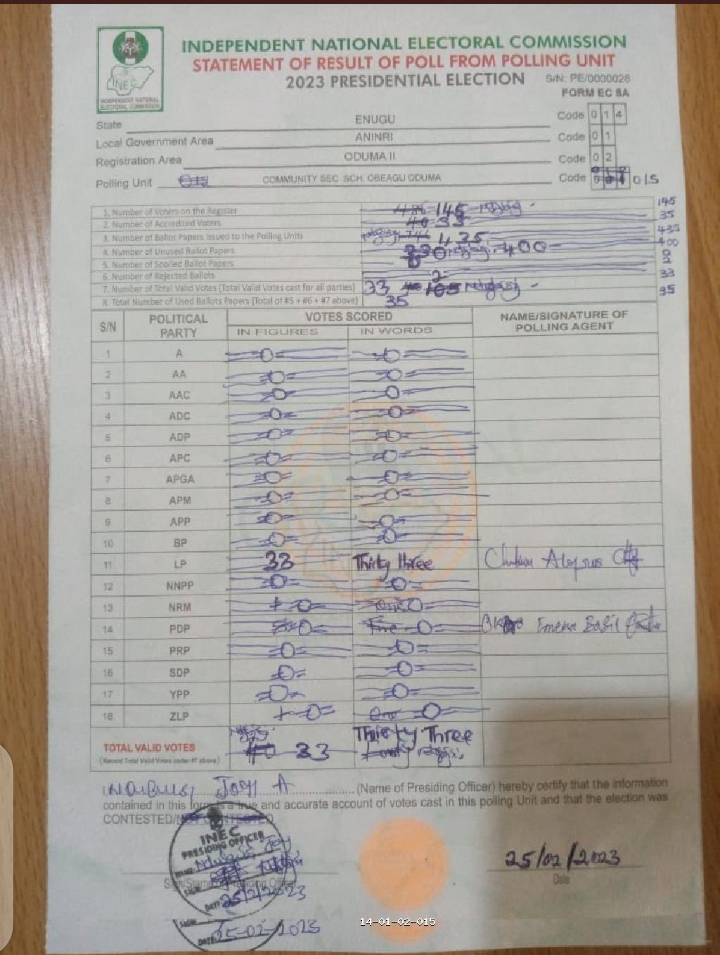 INDEPENDENT NATIONAL ELECTORAL COMMISSION
STATEMENT OF RESULT OF POLL FROM POLLING UNIT
2023 PRESIDENTIAL ELECTION S/N: PE/0000028
FORM EC 8A
INEC
INDEPENDENT NATIONAL ELECTORAL COMMISSION
State ENUGU Code 0 1 4
Local Government Area ANINRI Code 0 1
Registration Area ODUMA II Code 0 2
Polling Unit 015 COMMUNITY SEC. SCH. OBEAGU ODUMA Code 015
1. Number of Voters on the Register 145 145
2. Number of Accredited Voters 35
3. Number of Ballot Papers Issued to the Polling Units 435 435
4. Number of Unused Ballot Papers 400 400
5. Number of Spoiled Ballot Papers 0
6. Number of Rejected Ballots 2 2
7. Number of Total Valid Votes (Total Valid Votes cast for all parties) 33 33
8. Total Number of Used Ballots Papers (Total of #5 + #6 + #7 above) 35 35
S/N POLITICAL PARTY VOTES SCORED NAME/SIGNATURE OF POLLING AGENT
IN FIGURES IN WORDS
1 A =0= =0=
2 AA =0= =0=
3 AAC =0= =0=
4 ADC =0= =0=
5 ADP =0= =0=
6 APC =0= =0=
7 APGA =0= =0=
8 APM =0= =0=
9 APP =0= =0=
10 BP =0= =0=
11 LP 33 Thirty three
12 NNPP =0= =0=
13 NRM =0= =0=
14 PDP =0= Five =0= Emeka Basil
15 PRP =0= =0=
16 SDP =0= =0=
17 YPP =0= =0=
18 ZLP =0= One =0=
TOTAL VALID VOTES 40 33 Thirty Three
(Record Total Valid Votes under #7 above)
Joy A (Name of Presiding Officer) hereby certify that the information
contained in this form is a true and accurate account of votes cast in this polling Unit and that the election was
CONTESTED/NOT CONTESTED
INEC
PRESIDING OFFICER
25/02/2023
Date
DATE: 25-02-2023
14-01-02-015